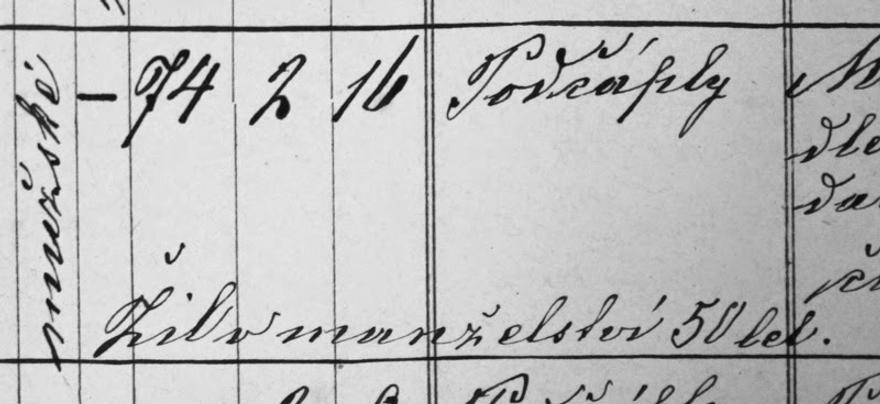 mužské
— 74 2 16 Podčáply
Žil v manželství 50 let.